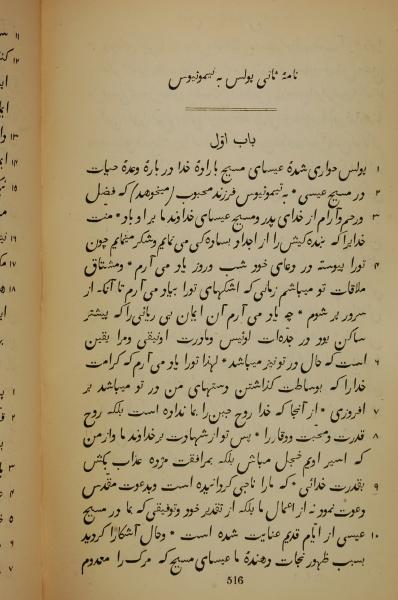 نامهٔ ثانی پولس به تیموثیوس
باب اوّل
۱ پولس حواری شدهٔ عیسای مسیح باراوهٔ خدا در بارهٔ وعدهٔ حیات
۲ در مسیح عیسی * به تیموثیوس فرزند محبوب (میخوهد) که فضل
۳ و رحم و آرام از خدای پدر و مسیح عیسای خداوند ما بر او باد * منت
خدایرا که بنده کیش را از اجداد بساده کی می نمایم و شکر مینمایم چون
۴ تورا پیوسته در دعای خود شب و روز یاد می آرم * و مشتاق
ملاقات تو میباشم زمانی که اشکهای تورا بیاد می آرم تا آنکه از
سرور پر شوم * چه یاد می آرم آن ایمان بی ریائی را که پیشتر
ساکن بود در جده‌ات لوئیس و مادرت اونیقی و مرا یقین
۶ است که حال در تو نیز میباشد * لهذا تورا یاد می آرم که کرامت
خدارا که بوساطت گذاشتن دستهای من در تو میباشد بر
۷ افروزی * از آنجا که خدا روح جبن را بما نداوه است بلکه روح
۸ قدرت و محبّت و وقار را * پس تو از شهادت بر خداوند ما و از من
که اسیر اویم خجل مباش بلکه بمرافقت مژده عذاب بکش
۹ بقدرت خدائی * که مارا ناجی گردانیده است و بدعوت مقدّس
دعوت نمود نه از اعمال ما بلکه از تقدیر خود و توفیقی که بما در مسیح
۱۰ عیسی از ایّام قدیم عنایت شده است * و حال آشکارا گردید
بسبب ظهور نجات دهندهٔ ما عیسای مسیح که مرگ را معدوم
516